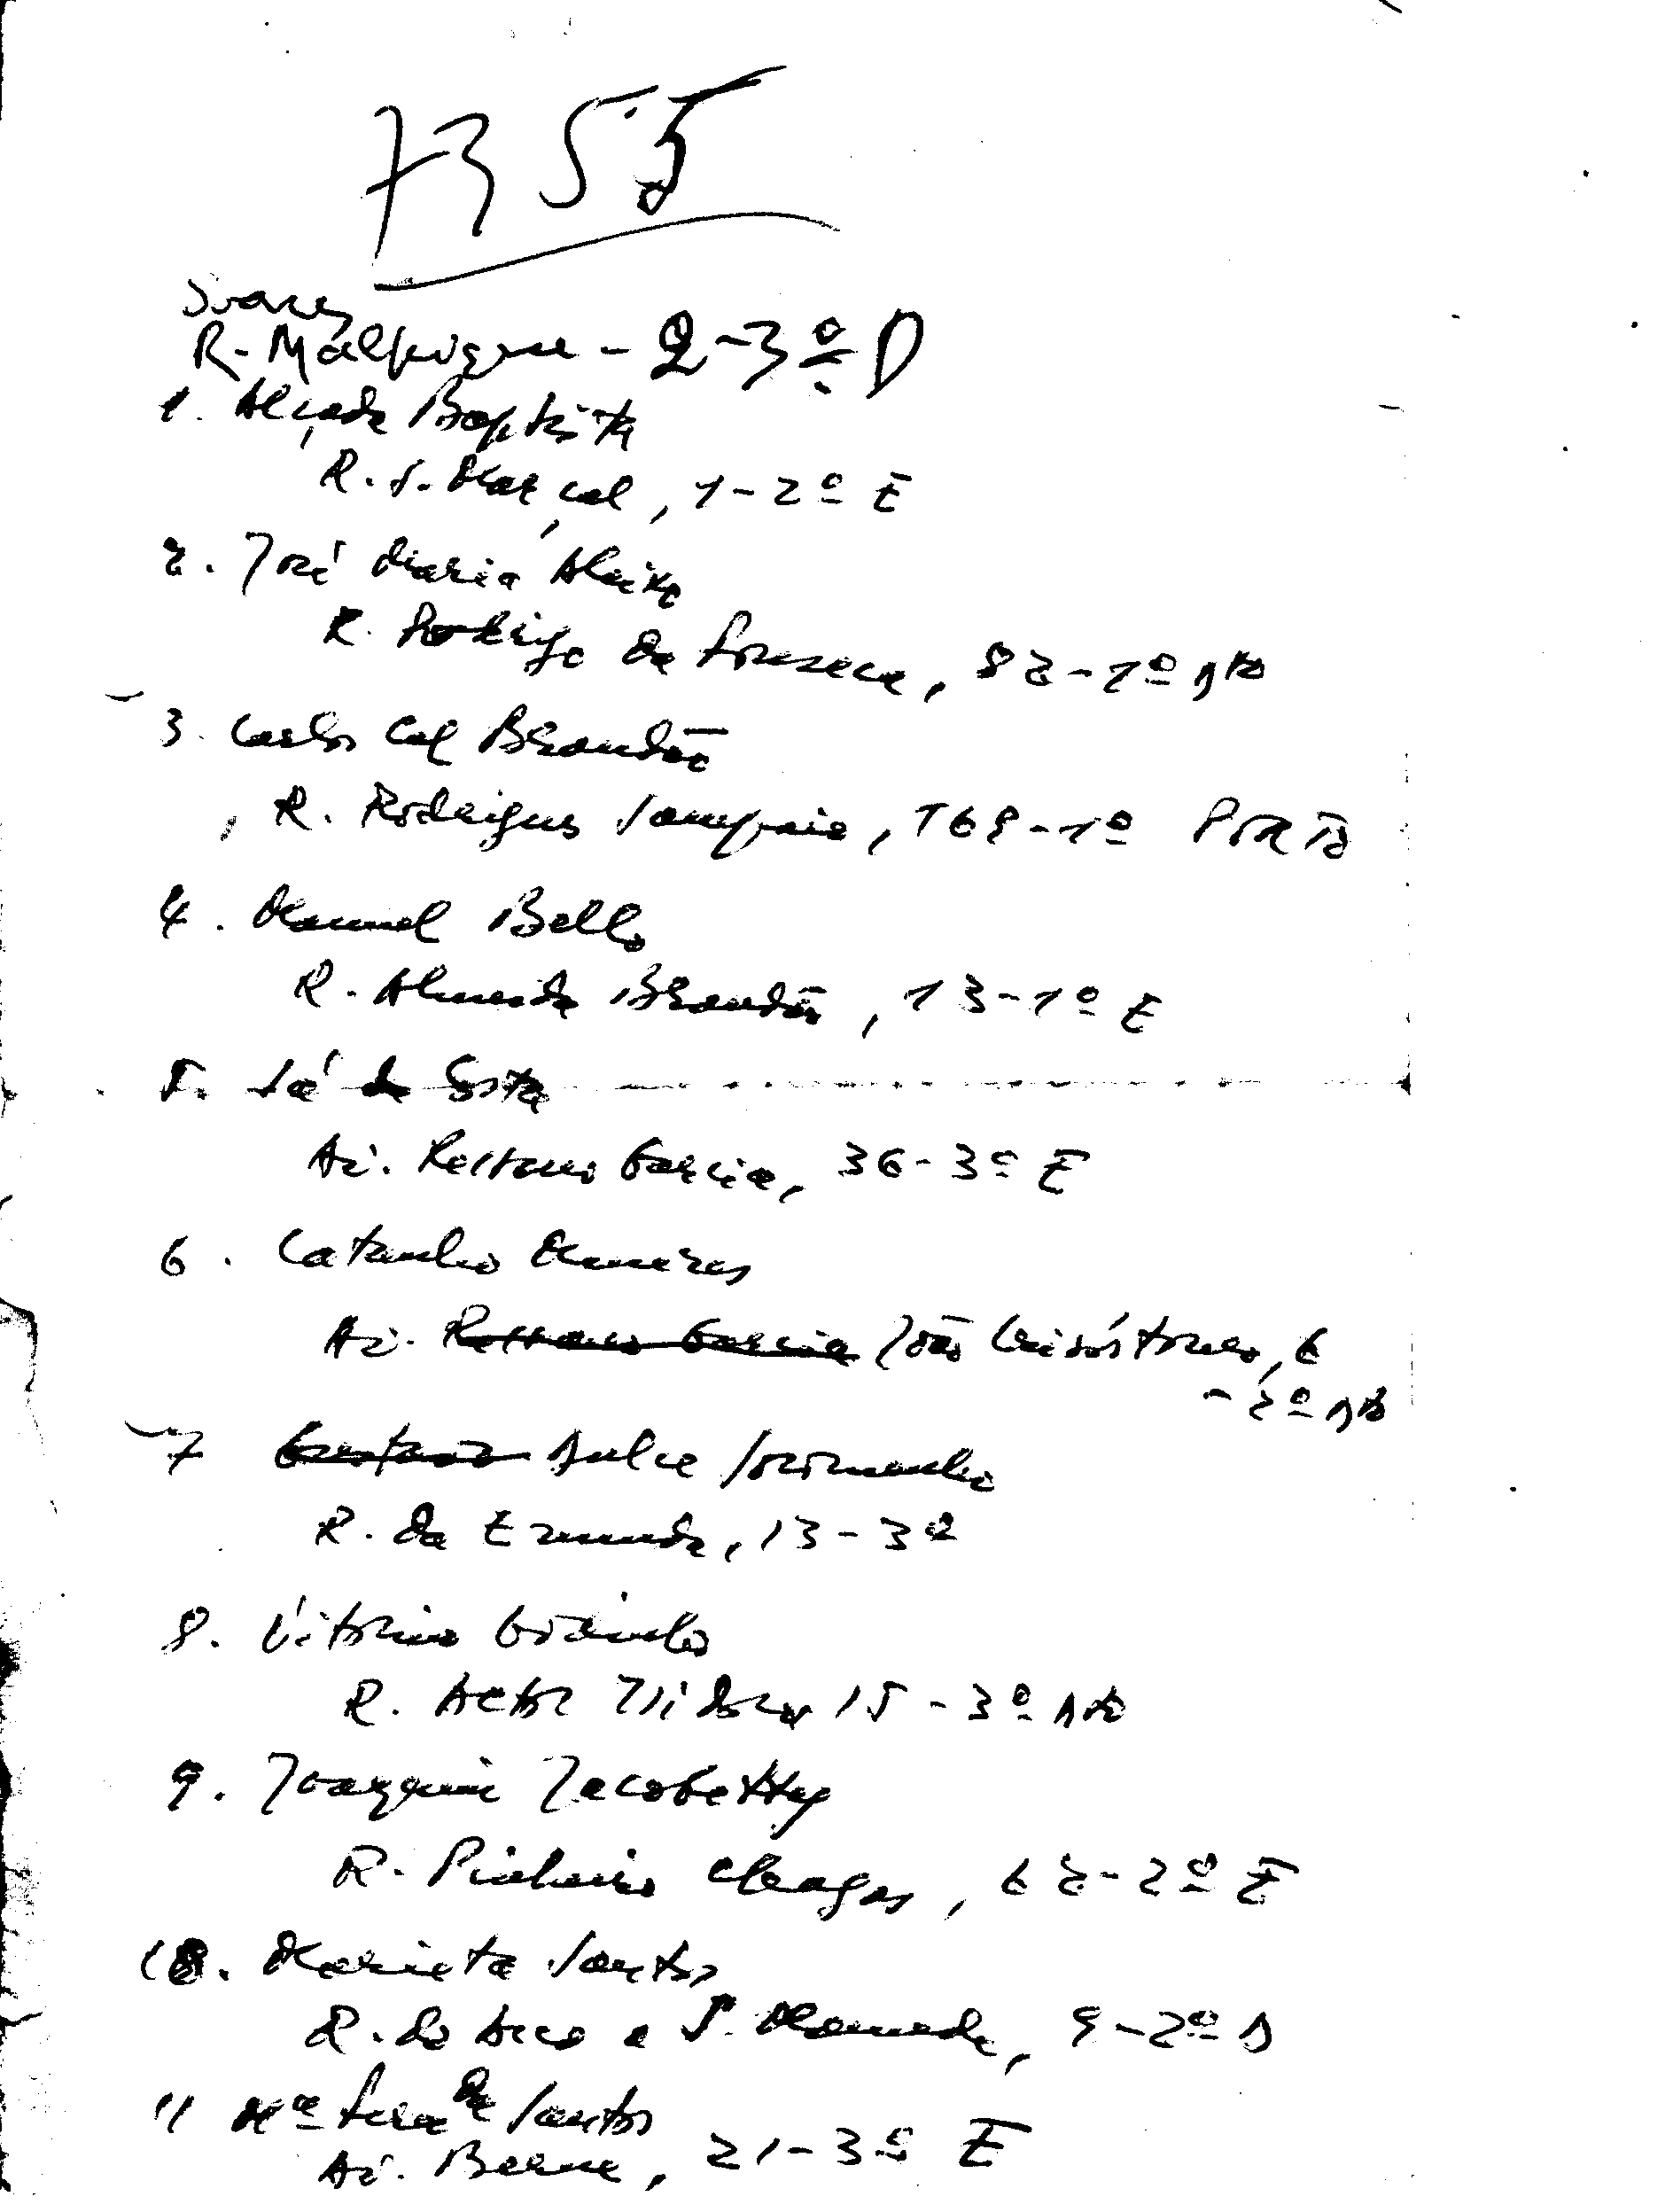 7355
Soares
R. Malpique - 2-3º D
1. Alçada Baptista
R. S. Marçal, 1-2º E
2. José Maria Aleixo
R. Rodrigo da Fonseca, 82-1º Dto
3. Carlos Cal Brandão
R. Rodrigues Sampaio, 169-1º PORTO
4. Manuel Bello
R. Almeida Brandão, 13-1º E
5. Sá da Costa
Av. Ressano Garcia, 36-3º E
6. Catanho Menezes
Av. Ressano Garcia João Crisóstomo, 6
-2º Dto
7 Gustavo Dulce Soromenho
R. da Emenda, 13-3º
8. Vitorino Godinho
R. Actor Isidoro 15-3º Dto
9. Joaquim Jacobetty
R. Pinheiro Chagas, 62-2º E
10. Marieta Santos
R. do Arco a S. Mamede, 9-2º D
11 Mª da Santos
Av. Berne, 21-3º E